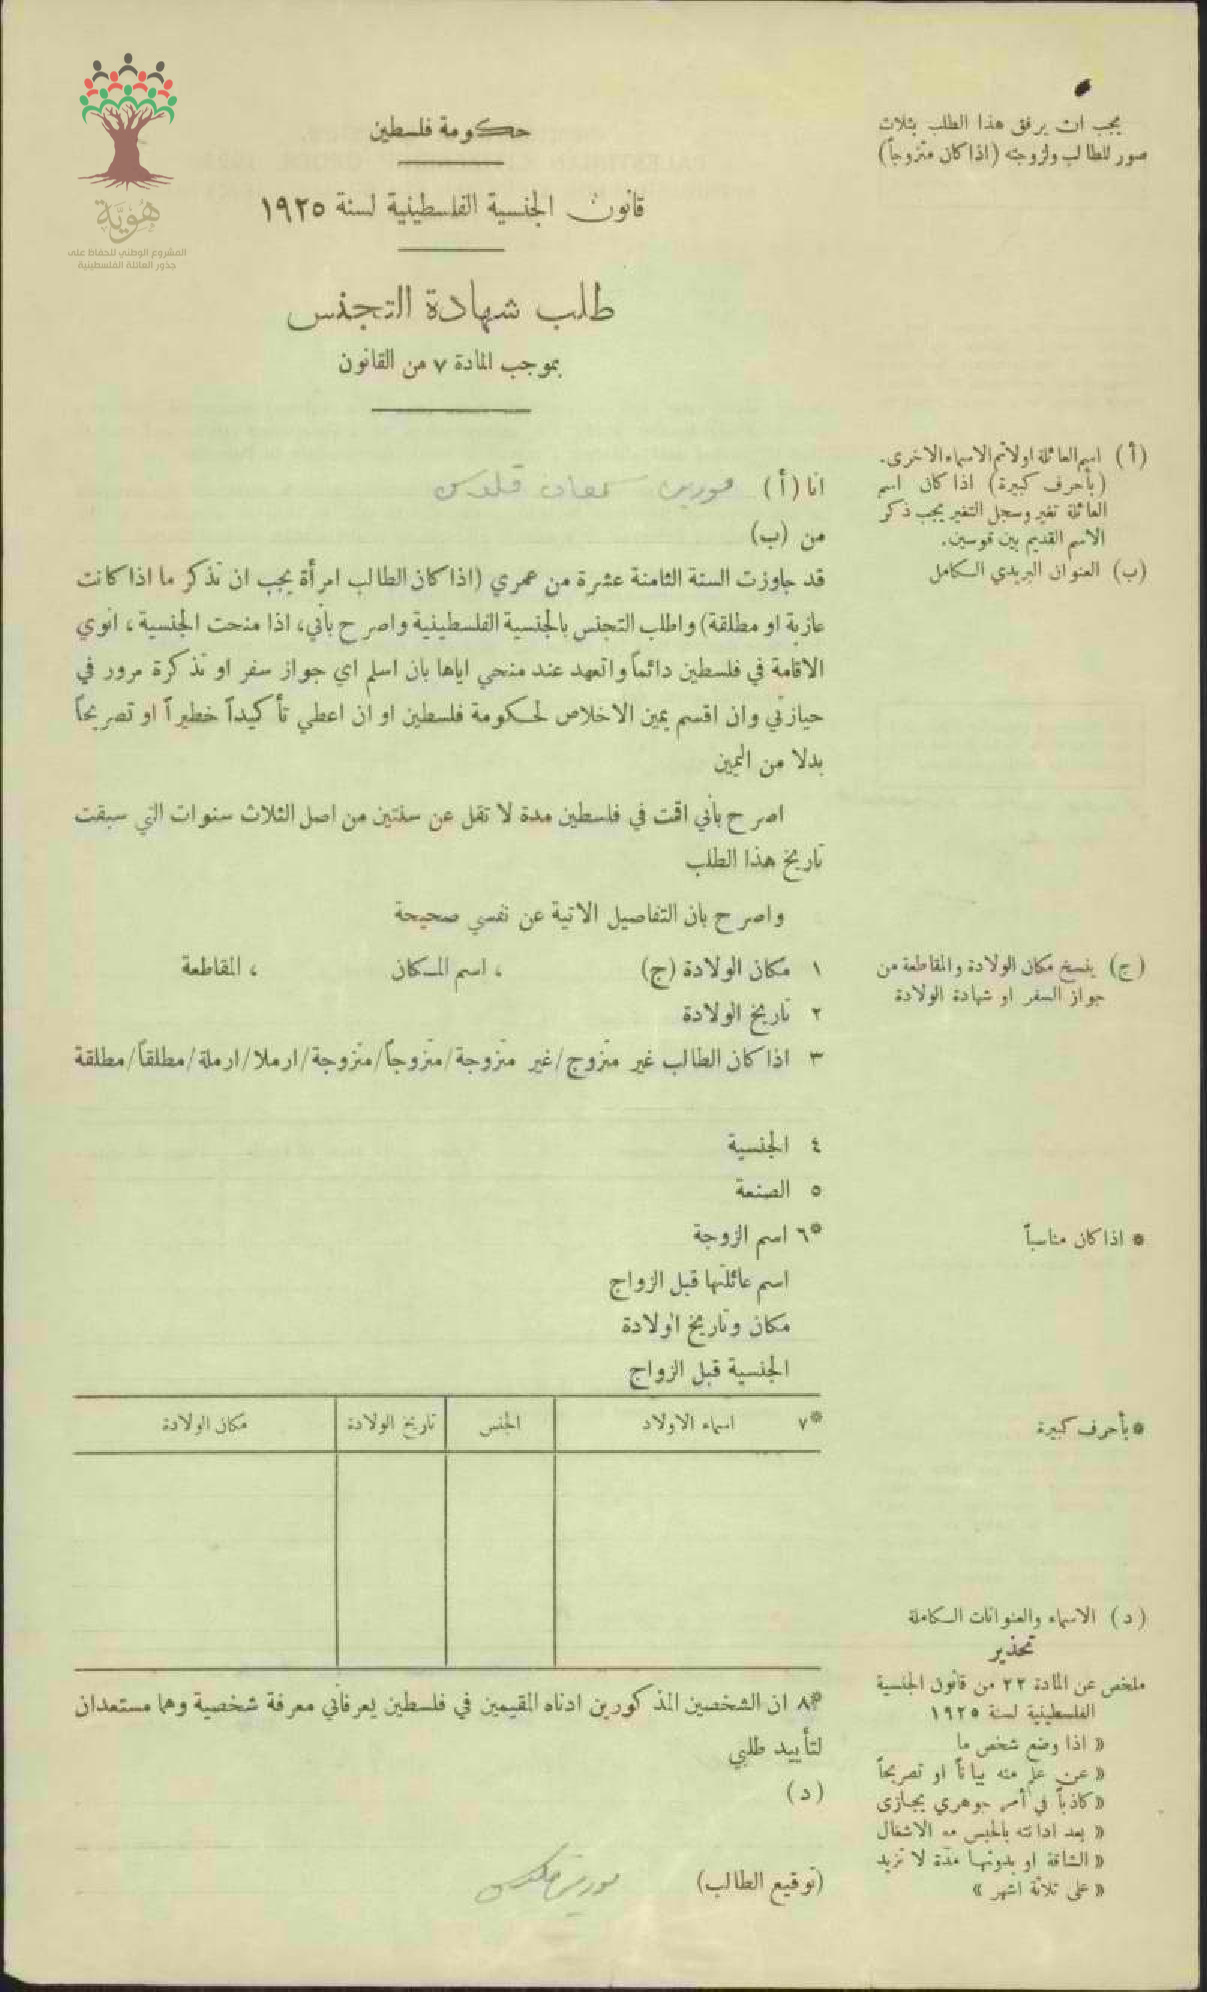 هويّة
المشروع الوطني للحفاظ على
جذور العائلة الفلسطينية
يجب ان يرفق هذا الطلب بثلاث
صور للطالب ولزوجته (اذا كان متزوجاً)
حكومة فلسطين
قانون الجنسية الفلسطينية لسنة ١٩٢٥
طلب شهادة التجنس
بموجب المادة ٧ من القانون
(أ) اسم العائلة اولا ثم الاسماء الاخرى.
(بأحرف كبيرة) اذا كان اسم
العائلة تغير وسجل التغير يجب ذكر
الاسم القديم بين قوسين.
(ب) العنوان البريدي الكامل
انا (أ) موريس سمعان قلدس
من (ب)
قد جاوزت السنة الثامنة عشرة من عمري (اذا كان الطالب امرأة يجب ان تذكر ما اذا كانت
عازبة او مطلقة) واطلب التجنس بالجنسية الفلسطينية واصرح بأني، اذا منحت الجنسية، انوي
الاقامة في فلسطين دائماً واتعهد عند منحي اياها بان اسلم اي جواز سفر او تذكرة مرور في
حيازتي وان اقسم يمين الاخلاص لحكومة فلسطين او ان اعطي تأكيداً خطيراً او تصريحاً
بدلا من اليمين
اصرح بأني اقمت في فلسطين مدة لا تقل عن سنتين من اصل الثلاث سنوات التي سبقت
تاريخ هذا الطلب
واصرح بان التفاصيل الاتية عن نفسي صحيحة
١ مكان الولادة (ج) ، اسم المكان ، المقاطعة
(ج) ينسخ مكان الولادة والمقاطعة من
جواز السفر او شهادة الولادة
٢ تاريخ الولادة
٣ اذا كان الطالب غير متزوج/غير متزوجة/متزوجاً/متزوجة/ارملا/ارملة/مطلقاً/مطلقة
٤ الجنسية
٥ الصنعة
*٦ اسم الزوجة
* اذا كان مناسباً
اسم عائلتها قبل الزواج
مكان وتاريخ الولادة
الجنسية قبل الزواج
*٧ اسماء الاولاد الجنس تاريخ الولادة مكان الولادة
* بأحرف كبيرة
*٨ ان الشخصين المذكورين ادناه المقيمين في فلسطين يعرفاني معرفة شخصية وهما مستعدان
لتأييد طلبي
(د)
(توقيع الطالب)
(د) الاسماء والعنوانات الكاملة
تحذير
ملخص عن المادة ٢٢ من قانون الجنسية
الفلسطينية لسنة ١٩٢٥
« اذا وضع شخص ما
« عن علم منه بياناً او تصريحاً
« كاذباً في أمر جوهري يجازى
« بعد ادانته بالحبس مع الاشغال
« الشاقة او بدونها مدة لا تزيد
« على ثلاثة اشهر »